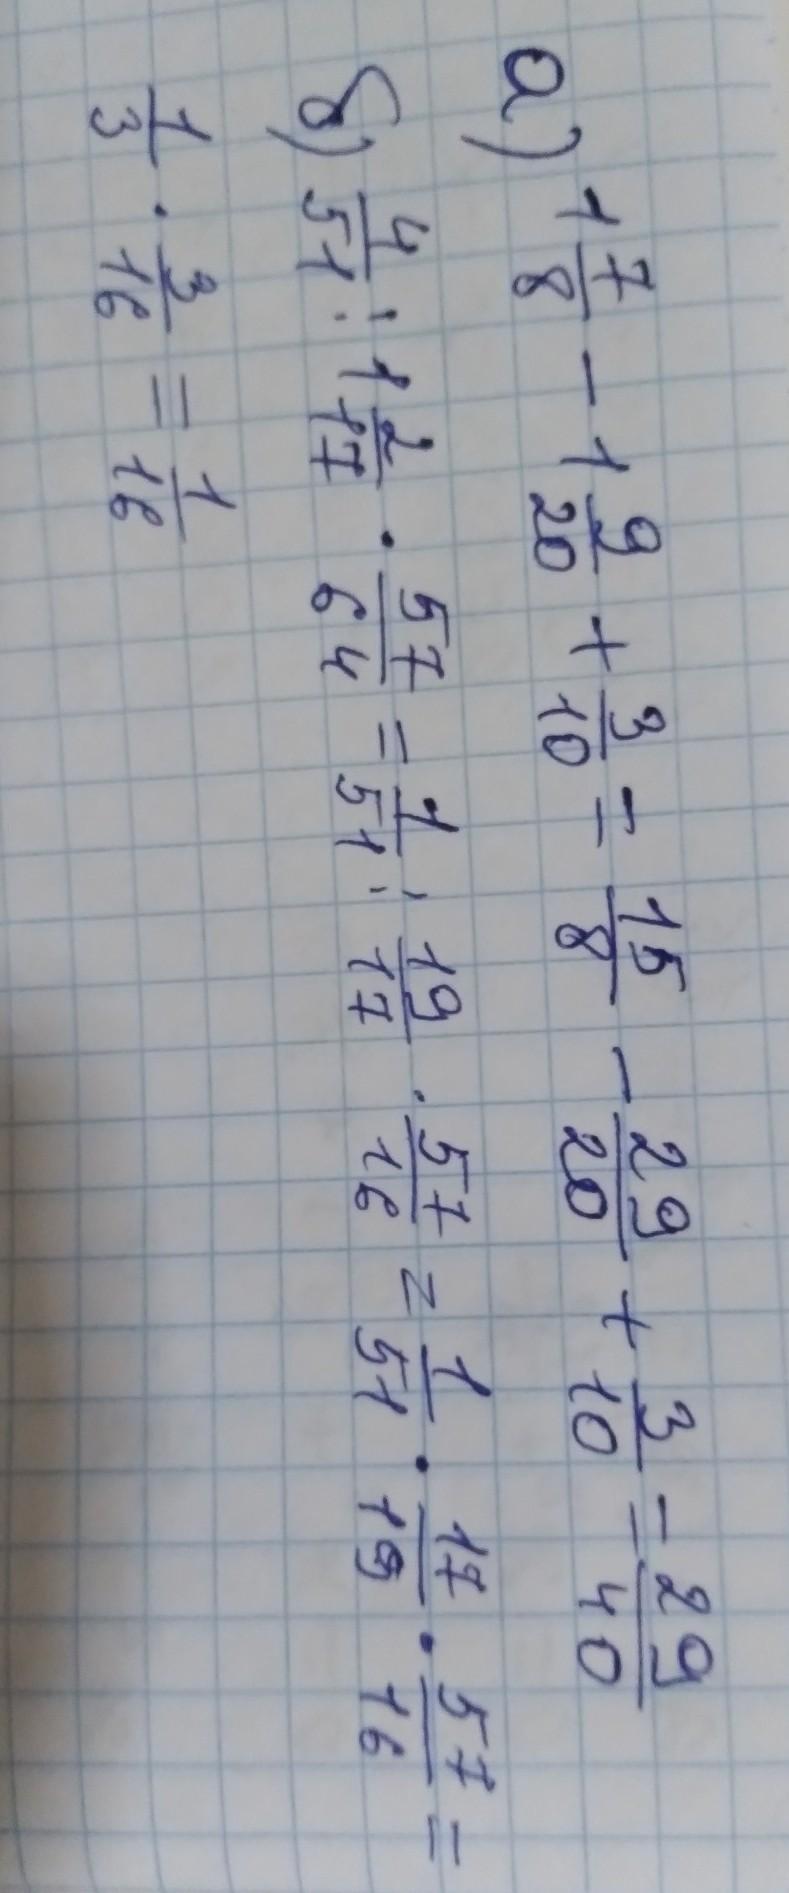 а) 1 7/8 - 1 9/20 + 3/10 = 15/8 - 29/20 + 3/10 = 29/40
б) 4/51 : 1 2/17 · 57/64 = 1/51 : 19/17 · 57/16 = 1/51 · 17/19 · 57/16 =
1/3 · 3/16 = 1/16